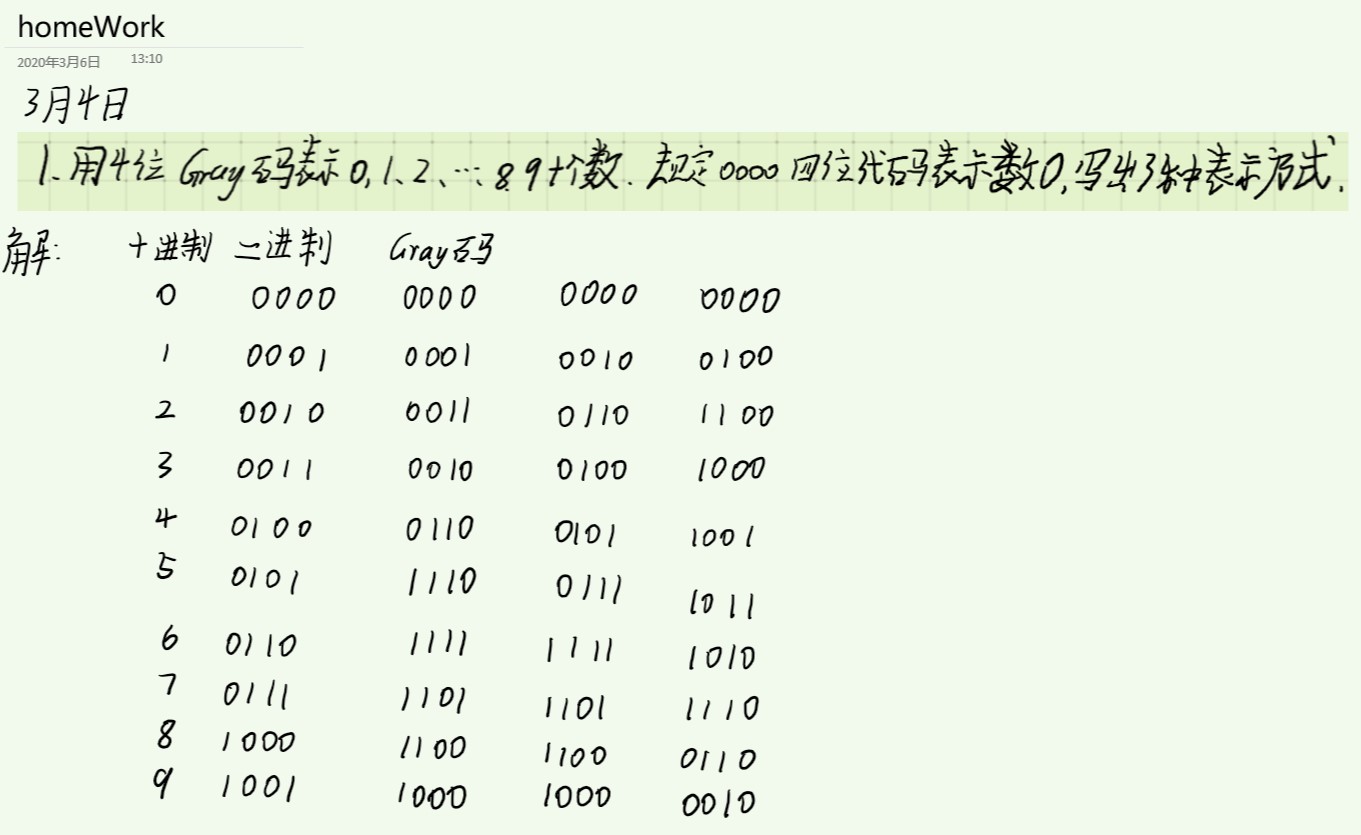 homeWork
2020年3月6日 13:10
3月4日
1、用4位Gray码表示0,1、2、…8.9十个数.规定0000四位代码表示数0,写出3种表示方式.
解: 十进制 二进制 Gray码
0 0000 0000 0000 0000
1 0001 0001 0010 0100
2 0010 0011 0110 1100
3 0011 0010 0100 1000
4 0100 0110 0101 1001
5 0101 1110 0111 1011
6 0110 1111 1111 1010
7 0111 1101 1101 1110
8 1000 1100 1100 0110
9 1001 1000 1000 0010